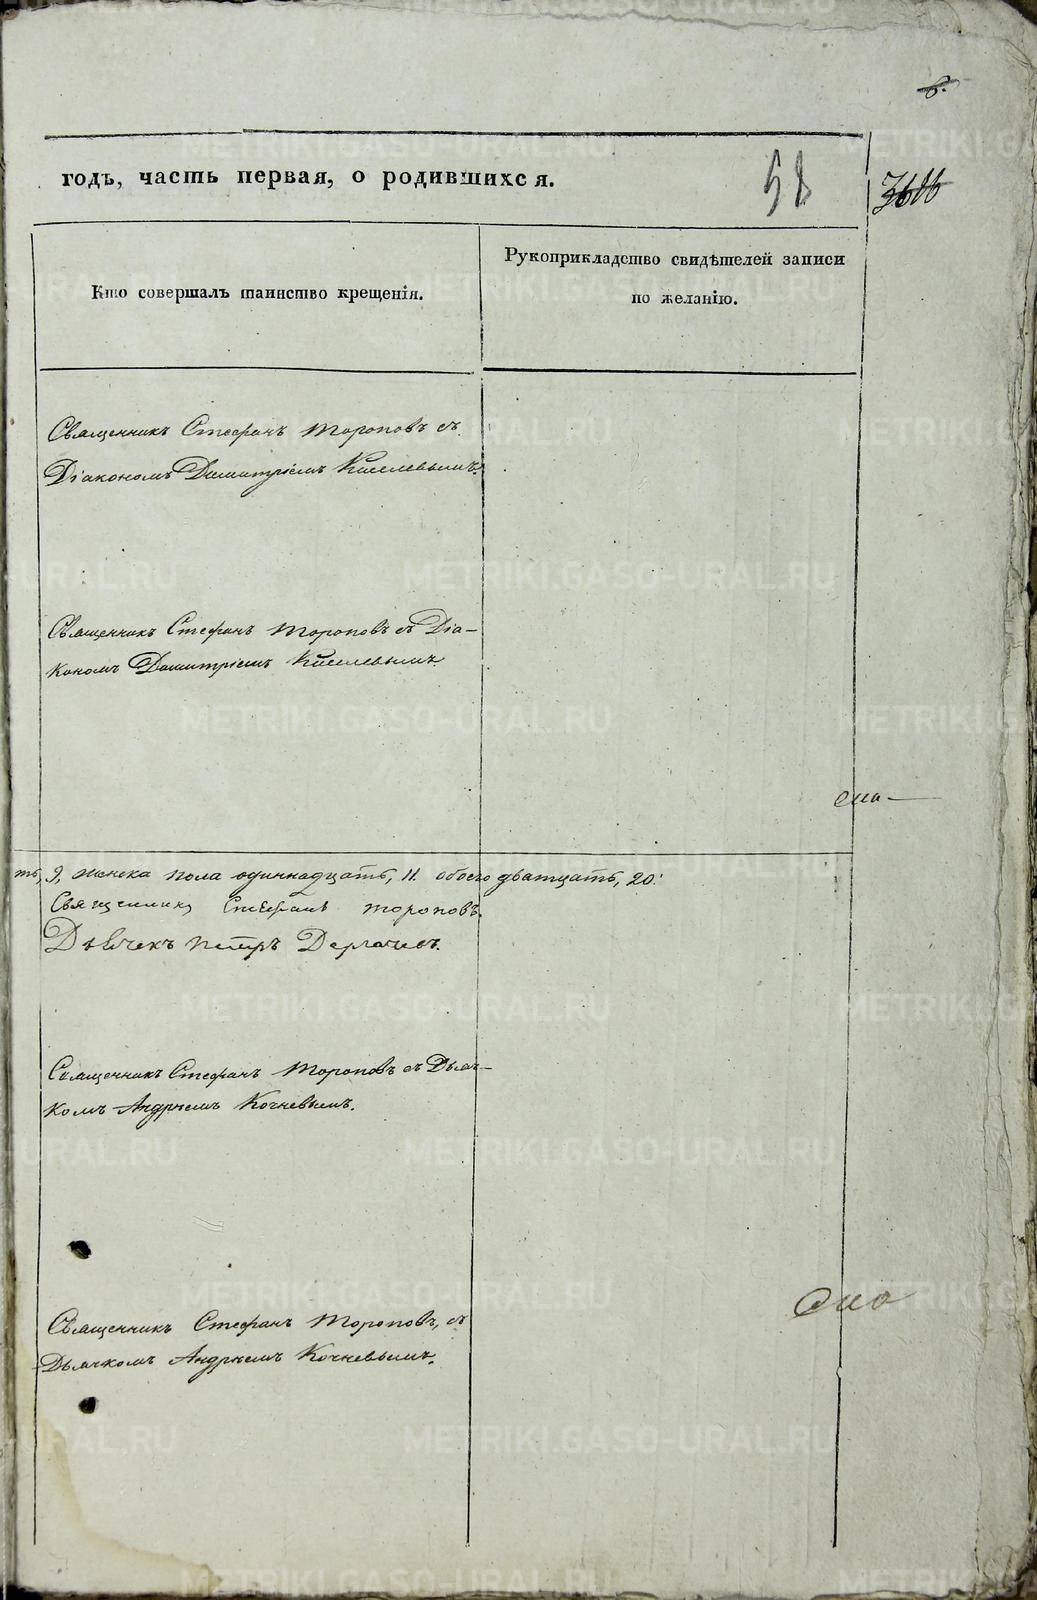 6.
годъ, часть первая, о родившихся.
58
Кто совершалъ таинство крещенія.
Рукоприкладство свидѣтелей записи
по желанію.
Священникъ Стефанъ Тороповъ съ
Діакономъ Димитріемъ Киселевымъ.
Священникъ Стефанъ Тороповъ съ Діа-
кономъ Димитріемъ Киселевымъ
ть, 9, женска пола одиннадцать, 11. обоего дватцать, 20.
Священникъ Стефанъ Тороповъ.
Дьячекъ Петръ Дергачевъ.
Священникъ Стефанъ Тороповъ съ Дьяч-
комъ Андреемъ Кочневымъ.
Священникъ Стефанъ Тороповъ, съ
Дьячкомъ Андреемъ Кочневымъ.
METRIKI.GASO-URAL.RU